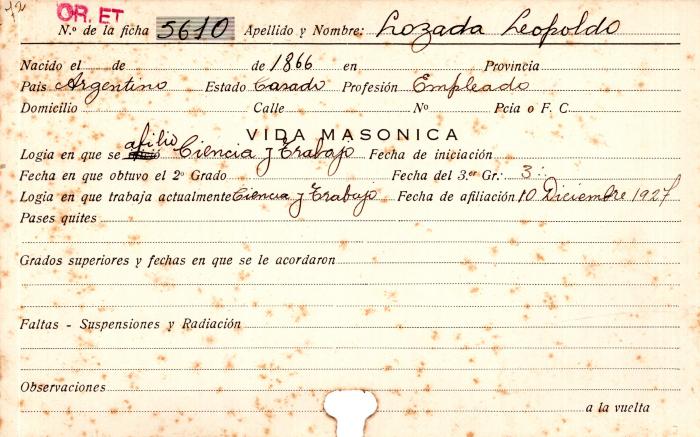 72
OR. ET
N.º de la ficha 5610 Apellido y Nombre: Lozada Leopoldo
Nacido el de de 1866 en Provincia
Pais Argentino Estado Casado Profesión Empleado
Domicilio Calle Nº Pcia o F. C.
VIDA MASONICA
afilio
Logia en que se Ciencia y Trabajo Fecha de iniciación
Fecha en que obtuvo el 2º Grado Fecha del 3.er Gr.: 3∴
Logia en que trabaja actualmente Ciencia y Trabajo Fecha de afiliación 10 Diciembre 1927
Pases quites
Grados superiores y fechas en que se le acordaron
Faltas - Suspensiones y Radiación
Observaciones
a la vuelta